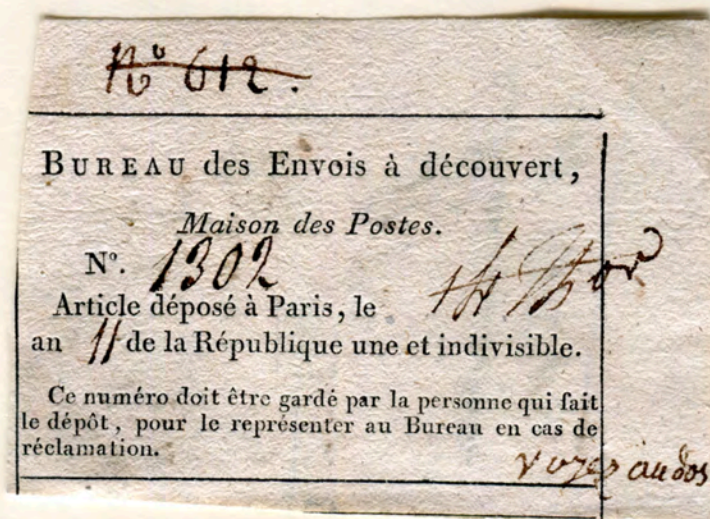 No 612.
BUREAU des Envois à découvert,
Maison des Postes.
No. 1302
Article déposé à Paris, le Thor
an 11 de la République une et indivisible.
Ce numéro doit être gardé par la personne qui fait
le dépôt, pour le représenter au Bureau en cas de
réclamation.
voyez au dos